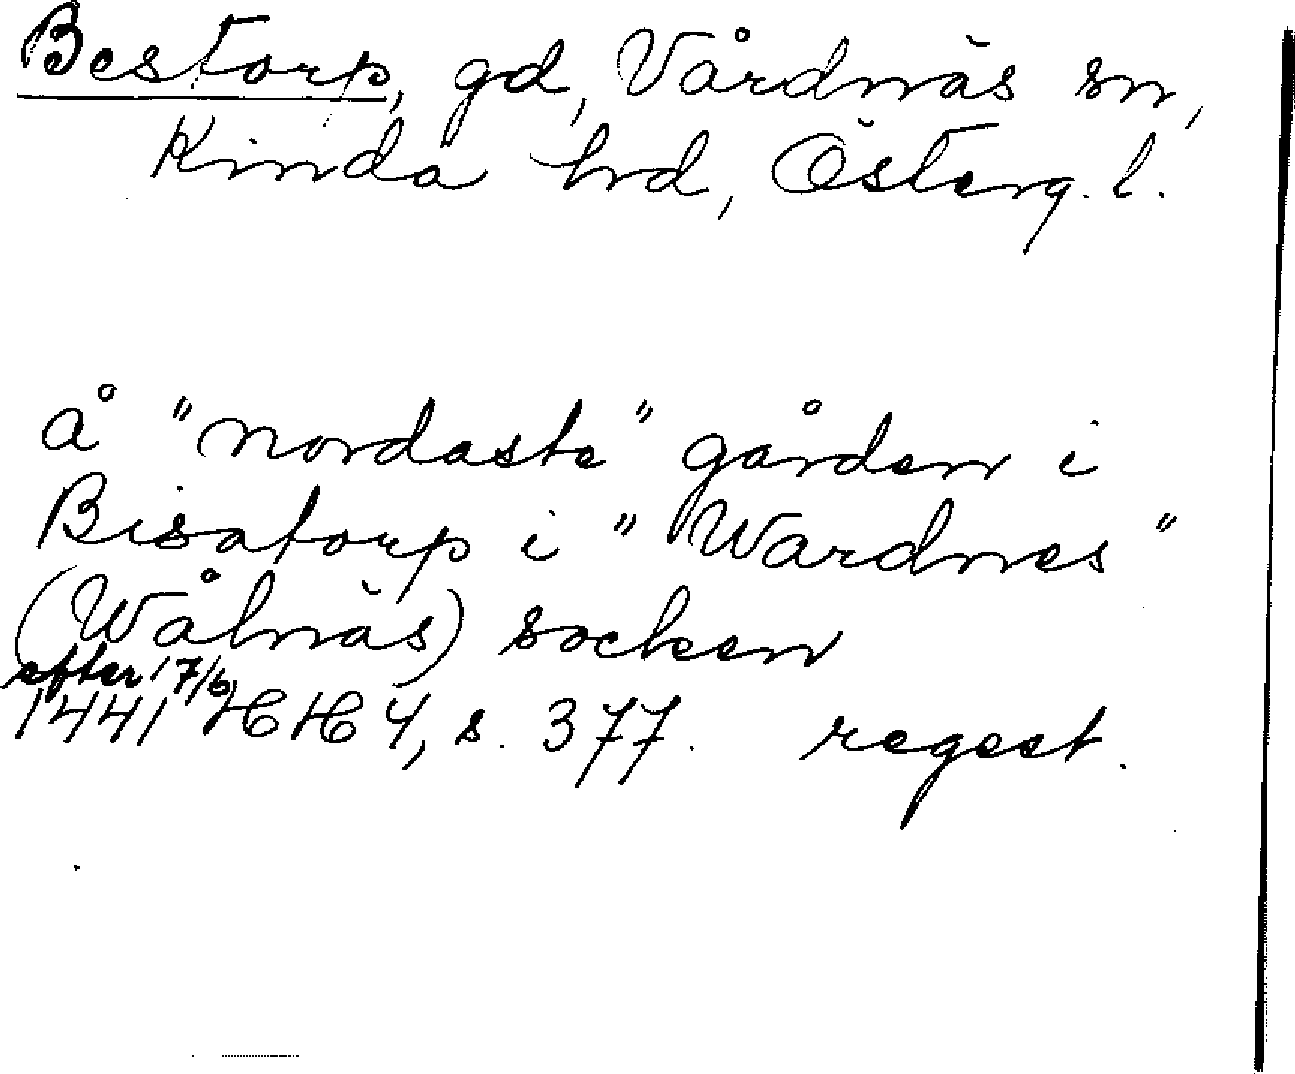 Bestorp, gd, Vårdnäs sn,
Kinda hrd, Österg. l.
å "nordaste" gården i
Bisatorp i "Wardnes"
(Wålnäs) socken
efter 17/6
1441 HH 4, s. 377. regest.